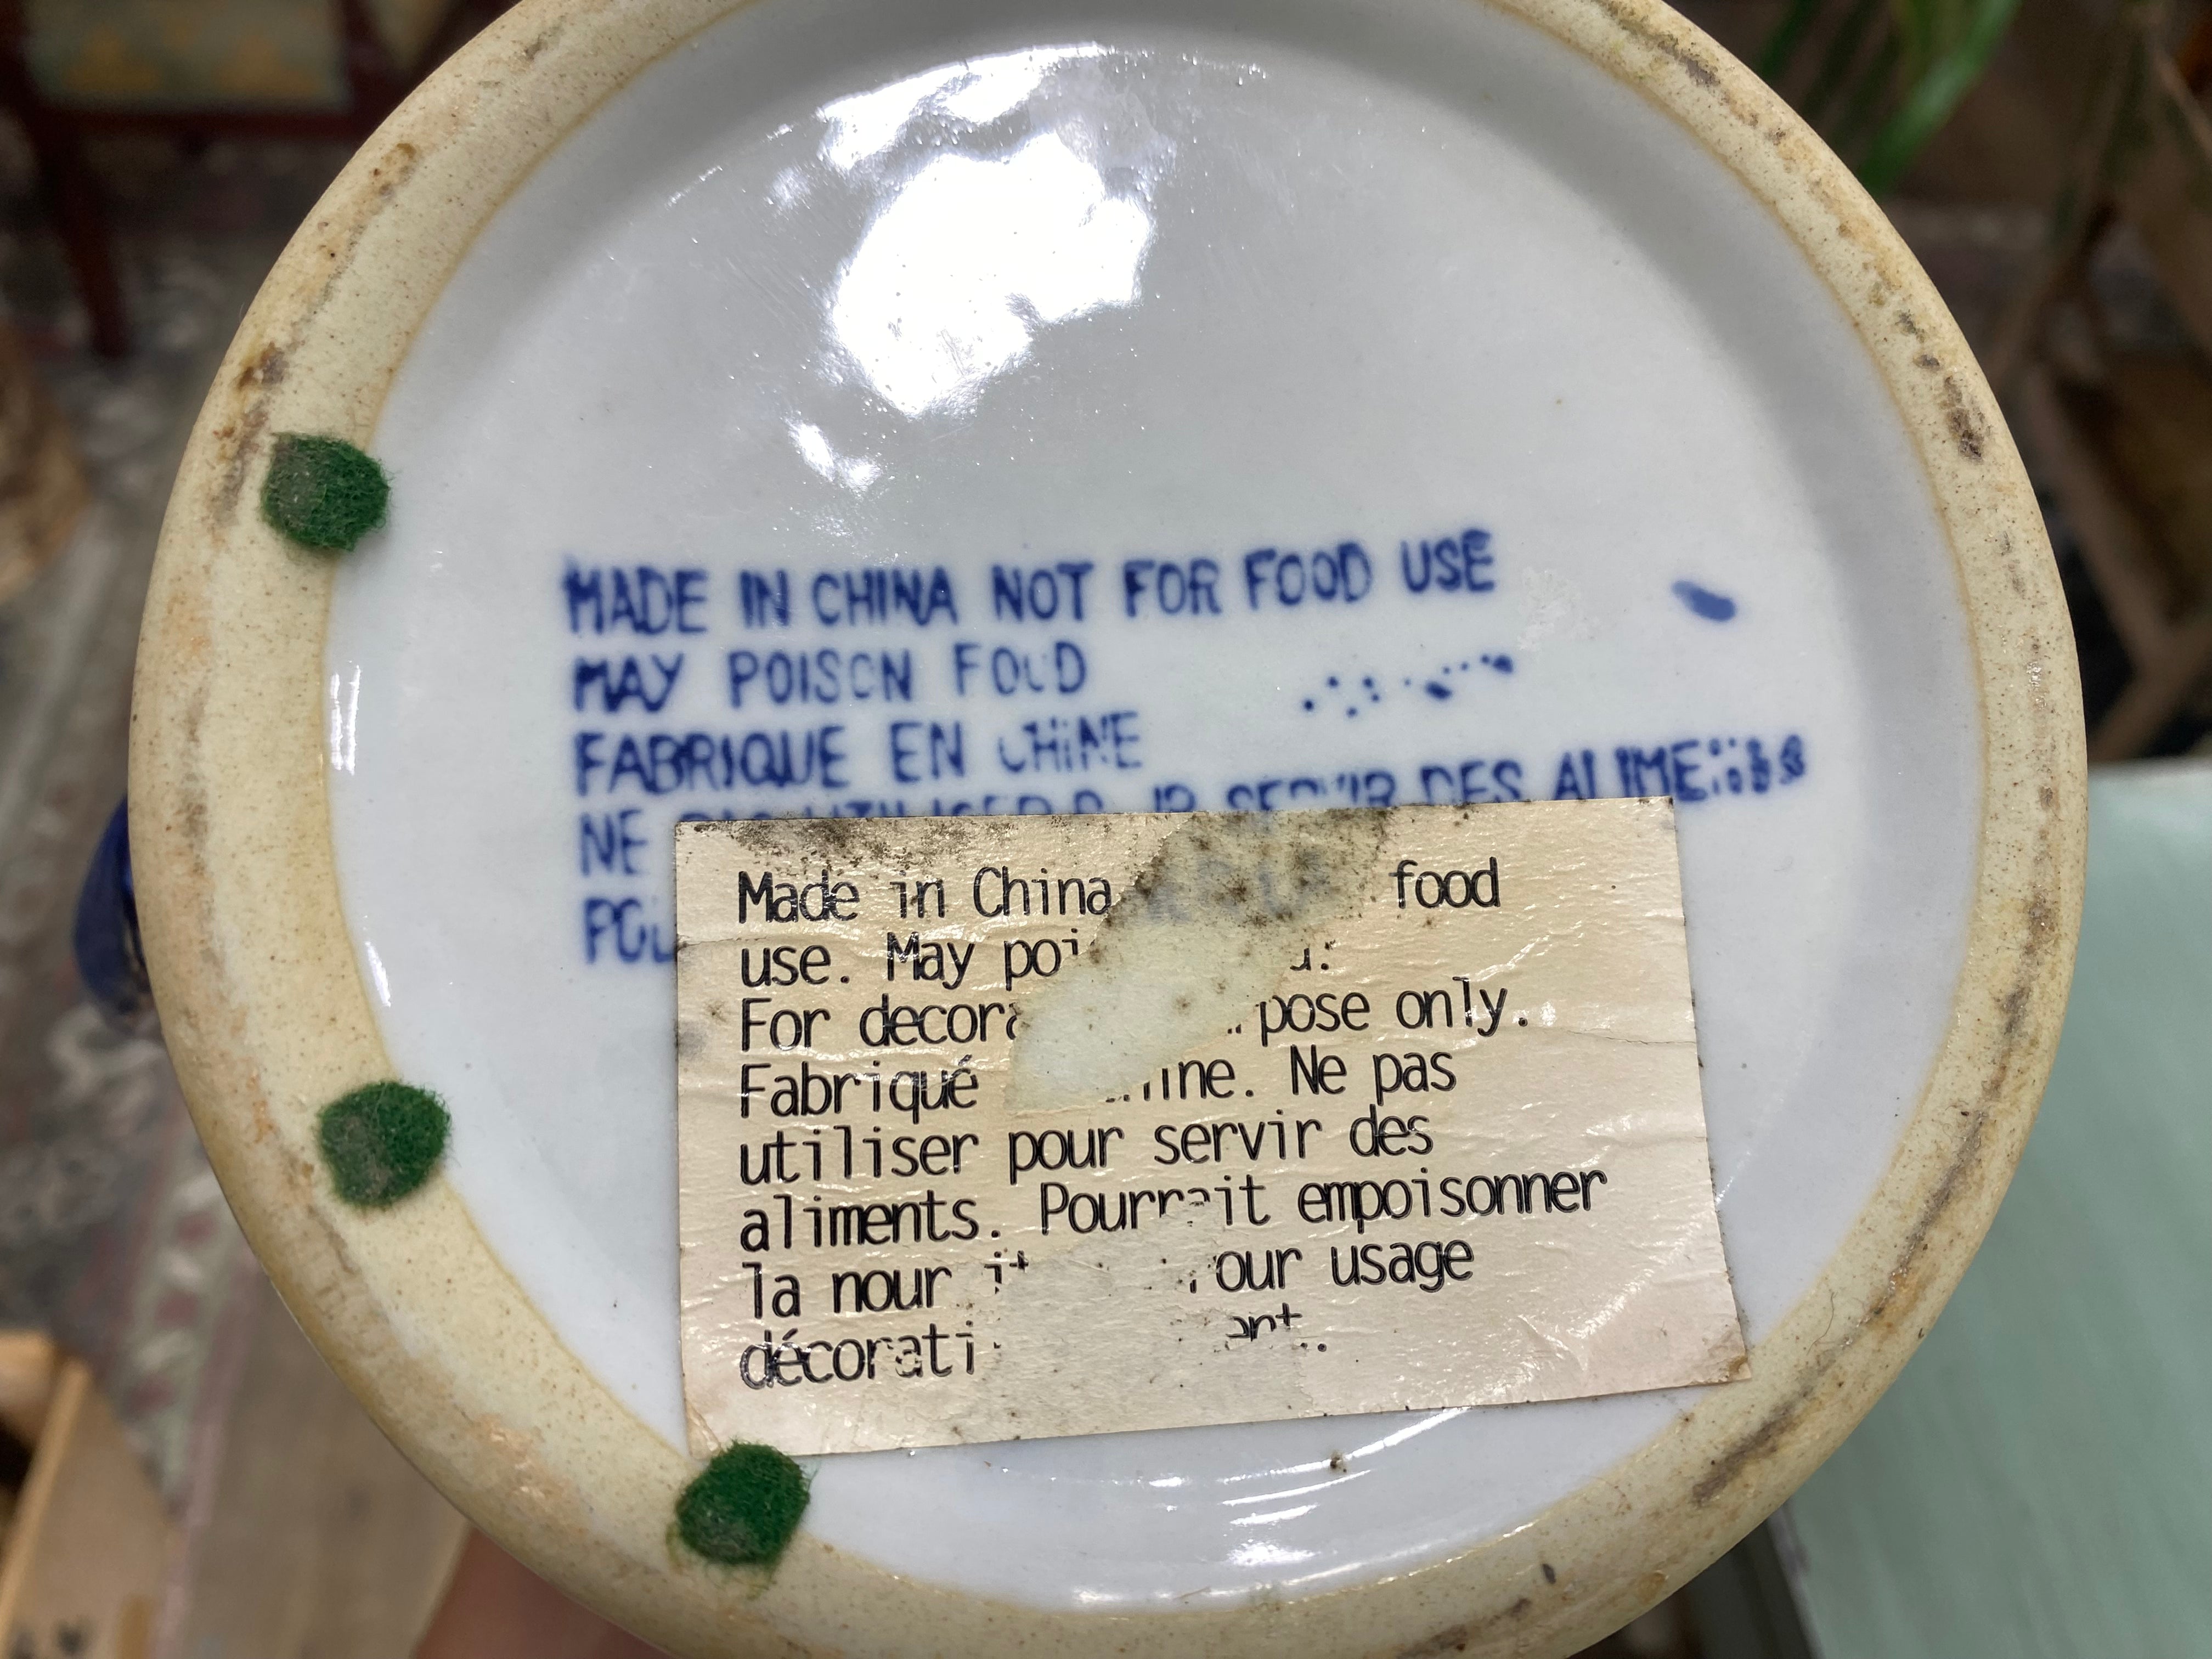 MADE IN CHINA NOT FOR FOOD USE
MAY POISON FOOD
FABRIQUE EN CHINE
NE SERVIR DES ALIMENTS
Made in China food
use. May
For only.
Fabriqué Ne pas
utiliser pour servir des
aliments. Pourrait empoisonner
la usage